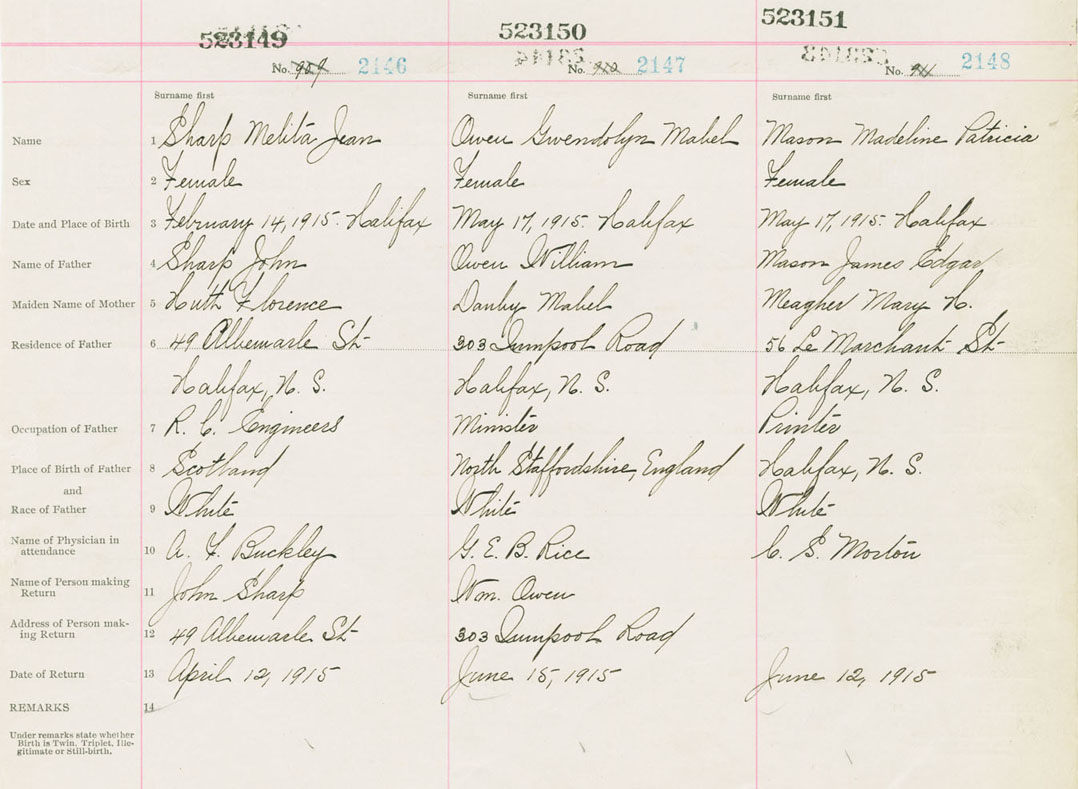 523149 523150 523151
No. 909 2146 No. 910 2147 No. 911 2148
Surname first Surname first Surname first
Name 1 Sharp Melita Jean Owen Gwendolyn Mabel Mason Madeline Patricia
Sex 2 Female Female Female
Date and Place of Birth 3 February 14, 1915. Halifax May 17, 1915. Halifax May 17, 1915. Halifax
Name of Father 4 Sharp John Owen William Mason James Edgar
Maiden Name of Mother 5 Huth Florence Danby Mabel Meagher Mary H.
Residence of Father 6 49 Albemarle St 303 Road 56 Le Marchant St
Halifax, N. S. Halifax, N. S. Halifax, N. S.
Occupation of Father 7 R. C. Engineers Minister Printer
Place of Birth of Father 8 Scotland North Staffordshire, England Halifax, N. S.
and
Race of Father 9 White White White
Name of Physician in
attendance 10 A. F. Buckley G. E. B. Rice C. S. Morton
Name of Person making
Return 11 John Sharp Wm. Owen
Address of Person mak-
ing Return 12 49 Albemarle St 303 Road
Date of Return 13 April 12, 1915 June 15, 1915 June 12, 1915
REMARKS 14
Under remarks state whether
Birth is Twin, Triplet, Ille-
gitimate or Still-birth.